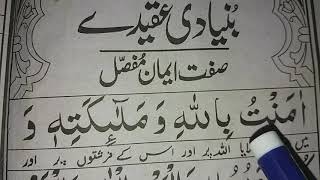 بُنیادی عقیدے
صفت ایمان مُفصّل
اٰمَنْتُ بِاللّٰهِ وَ مَلٰٓئِكَتِهٖ وَ
میں یا اللہ پر اور اس کے فرشتوں پر اور